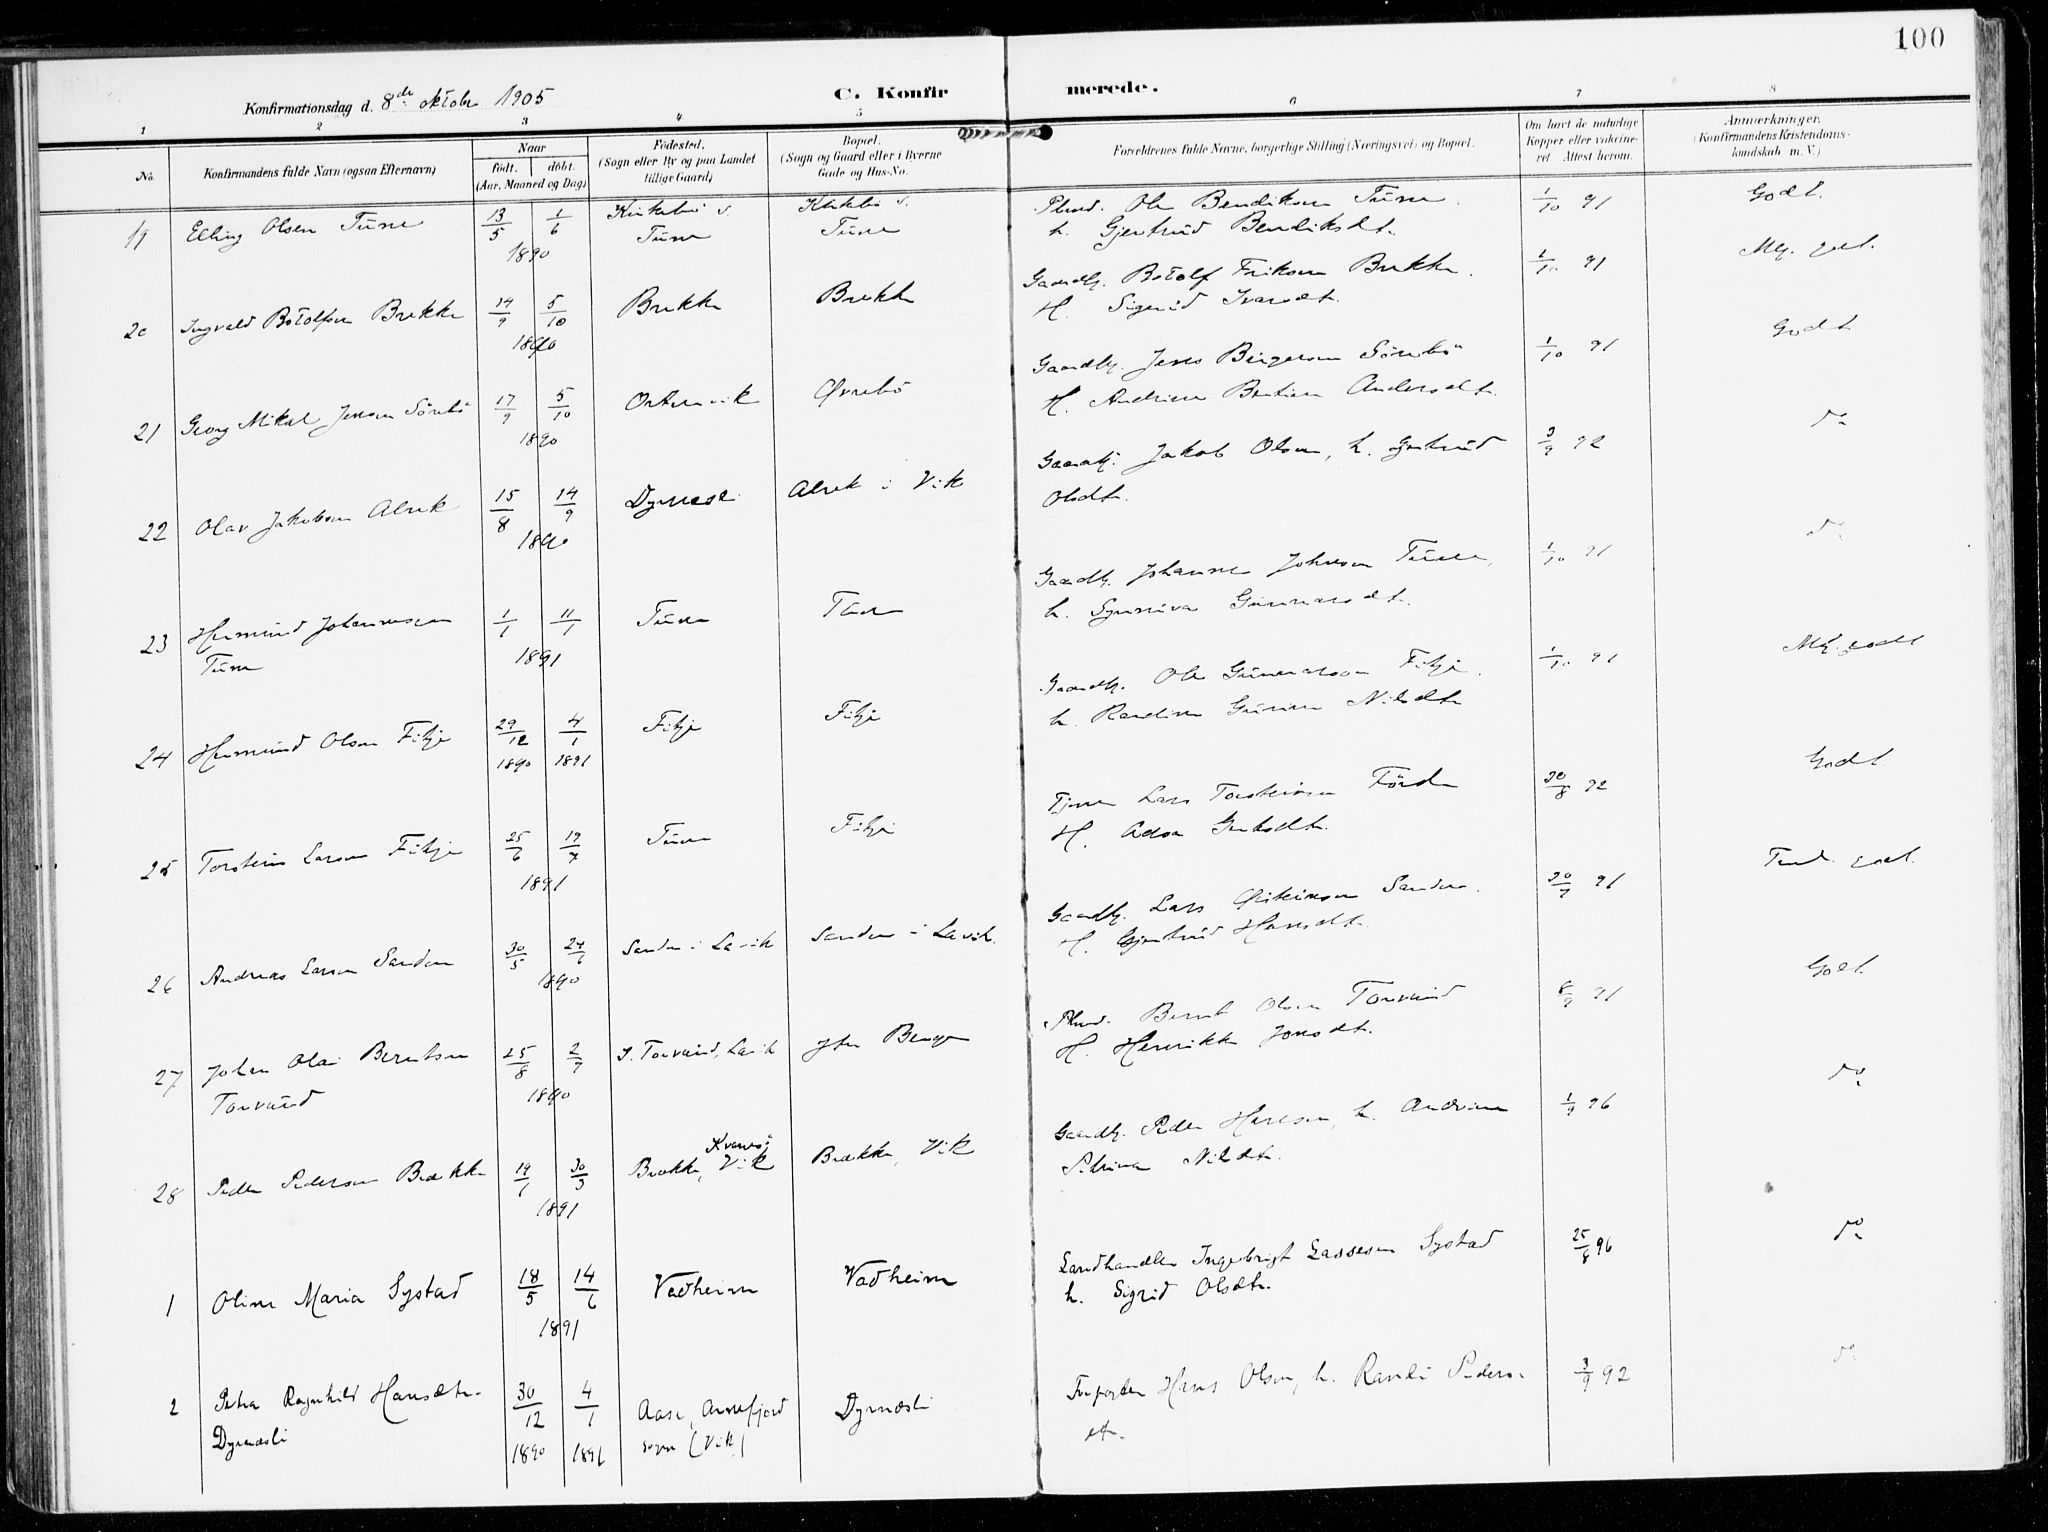 100
Konfirmationsdag d. 8de oktober 1905
C. Konfirmerede.
1 2 3 4 5 6 7 8
No. Konfirmandens fulde Navn (ogsaa Efternavn) Naar født. døbt. (Aar, Maaned og Dag) Fødested. (Sogn eller By og paa Landet tillige Gaard) Bopæl. (Sogn og Gaard eller i Byerne Gade og Hus-No. Forældrenes fulde Navne, borgerlige Stilling (Næringsvei) og Bopæl. Om havt de naturlige Kopper eller vakcineret Attest herom. Anmærkninger. (Konfirmandens Kristendomskundskab m. V.)
19 Elling Olsen Tune 13/5 1/6 Kirkebø s. Plmd. Ole Bendiksen Tune 1/10 91 Godt.
1890 Tune Tune h. Gjertrud Bendiksdt.
20 Ingvald Botolfsen Brekke 14/9 5/10 Brekke Brekke Gaardbr. Botolf Eriksen Brekke 1/10 91 Mg. godt.
1890 H. Sigrid Ivarsdt.
21 Georg Mikal Jensen Sørebø 17/9 5/10 Øvrebø Gaardbr. Jens Birgersen Sørebø 1/10 91 Godt
1890 H. Andrine Bertine Andersdt.
22 Olav Jakobsen Alrek 15/8 14/9 Dyrnesli Alrek i Vik Gaardbr. Jakob Olsen, h. Gjertrud 3/9 92 do
1890 Olsdtr.
23 Hermund Johannesen 1/1 11/1 Tune Tune Gaardbr. Johannes Johnsen Tune, 1/10 91 do
Tune 1891 h. Synneva Gunnarsdt.
24 Hermund Olsen Fikje 29/12 4/1 Fikje Fikje Gaardbr. Ole Gunnarson Fikje 1/10 91 Mg. godt
1890 1891 h. Nilsdt
25 Torstein Larsen Fikje 25/6 19/7 Tune Fikje Lars Torsteinsen Førde 30/8 92 Godt
1891 H.
26 Andreas Larsen Sanden 30/5 24/6 Sanden i Lavik Sanden i Lavik. Gaardbr. Lars Sanden. 20/9 91 godt.
1890 H. Gjertrud Hansdt.
27 Johan Olai Berntsen 25/8 2/9 Torvund, Lavik Plmd. Bernt Olsen Torvund 8/9 91 Godt.
Torvund 1890 H. Henrikke Jonsdt.
28 Peder Pedersen Brække 14/1 30/3 Brække, Kvamsø Vik Brække, Vik Gaardbr. Peder Hansen, h. Andrine 1/9 96 do
1891 Petrina Nilsdt.
1 Oline Maria Systad 18/5 14/6 Vadheim Vadheim Landhandler Ingebrigt Lassesen Systad 25/8 96 do
1891 h. Sigrid Olsdt.
2 Petra Ragnhild Hansdtr. 30/12 4/1 Aase, Arnefjord Dyrnesli Hans Olsen, h. Randi Peders- 3/9 92 do
Dyrnesli 1890 1891 sogn (Vik) dt.